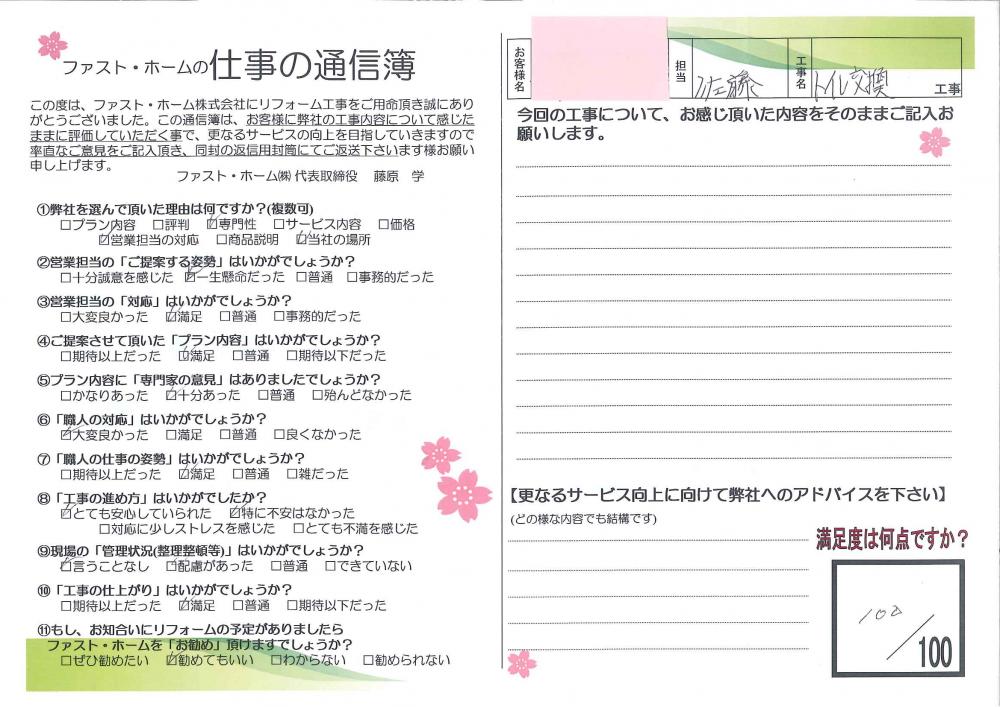 ファスト・ホームの仕事の通信簿
この度は、ファスト・ホーム株式会社にリフォーム工事をご用命頂き誠にあり
がとうございました。この通信簿は、お客様に弊社の工事内容について感じた
ままに評価していただく事で、更なるサービスの向上を目指していきますので
率直なご意見をご記入頂き、同封の返信用封筒にてご返送下さいます様お願い
申し上げます。
ファスト・ホーム㈱ 代表取締役 藤原 学
①弊社を選んで頂いた理由は何ですか？(複数可)
□プラン内容 □評判 ☑専門性 □サービス内容 □価格
☑営業担当の対応 □商品説明 ☑当社の場所
②営業担当の「ご提案する姿勢」はいかがでしょうか？
□十分誠意を感じた ☑一生懸命だった □普通 □事務的だった
③営業担当の「対応」はいかがでしょうか？
□大変良かった ☑満足 □普通 □事務的だった
④ご提案させて頂いた「プラン内容」はいかがでしょうか？
□期待以上だった ☑満足 □普通 □期待以下だった
⑤プラン内容に「専門家の意見」はありましたでしょうか？
□かなりあった ☑十分あった □普通 □殆んどなかった
⑥「職人の対応」はいかがでしょうか？
☑大変良かった □満足 □普通 □良くなかった
⑦「職人の仕事の姿勢」はいかがでしょうか？
□期待以上だった ☑満足 □普通 □雑だった
⑧「工事の進め方」はいかがでしたか？
☑とても安心していられた ☑特に不安はなかった
□対応に少しストレスを感じた □とても不満を感じた
⑨現場の「管理状況(整理整頓等)」はいかがでしょうか？
☑言うことなし ☑配慮があった □普通 □できていない
⑩「工事の仕上がり」はいかがでしょうか？
□期待以上だった ☑満足 □普通 □期待以下だった
⑪もし、お知合いにリフォームの予定がありましたら
ファスト・ホームを「お勧め」頂けますでしょうか？
□ぜひ勧めたい ☑勧めてもいい □わからない □勧められない
お客様名
担当 佐藤
工事名 トイレ交換 工事
今回の工事について、お感じ頂いた内容をそのままご記入お
願いします。
【更なるサービス向上に向けて弊社へのアドバイスを下さい】
(どの様な内容でも結構です)
満足度は何点ですか？
100/100